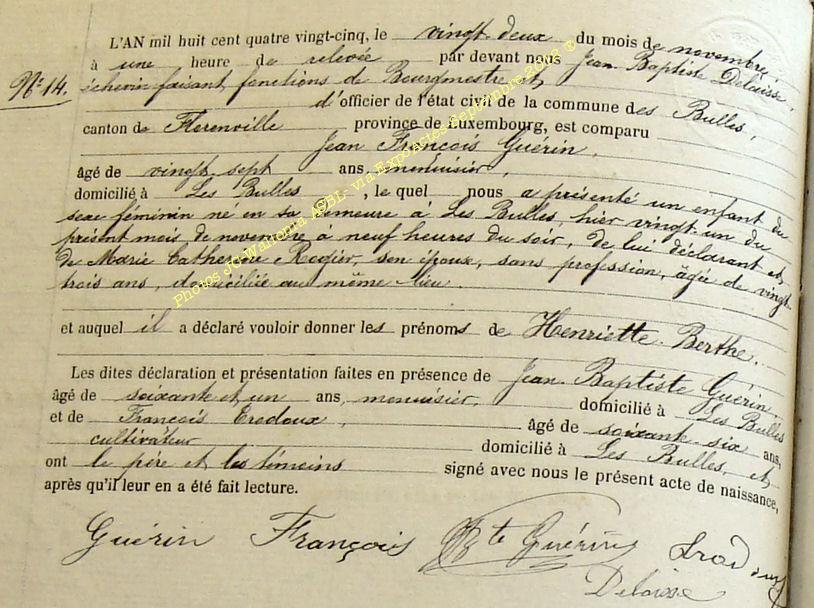 L'AN mil huit cent quatre vingt-cinq, le vingt deux du mois de novembre,
à une heure de relevée par devant nous Jean Baptiste Delaisse,
N° 14. échevin faisant fonctions de Bourgmestre et
d'officier de l'état civil de la commune des Bulles,
canton de Florenville province de Luxembourg, est comparu
Jean François Guérin,
âgé de vingt sept ans, menuisier,
domicilié à Les Bulles, le quel nous a présenté un enfant du
sexe féminin né en sa demeure à Les Bulles, hier vingt un du
présent mois de novembre à neuf heures du soir, de lui déclarant et
de Marie Catherine Rogier, son époux, sans profession, âgée de vingt
trois ans, domiciliée au même lieu.
et auquel il a déclaré vouloir donner les prénoms de Henriette Berthe.
Les dites déclaration et présentation faites en présence de Jean Baptiste Guérin,
âgé de soixante et un ans, menuisier, domicilié à Les Bulles
et de François Eredoux, âgé de soixante six ans,
cultivateur domicilié à Les Bulles, et
ont le père et les témoins signé avec nous le présent acte de naissance,
après qu'il leur en a été fait lecture.
Guérin François Bte Guérin
Delaisse
Photos JC-Wallonia ASBL- via ExpoActes Septembre 2008 ®